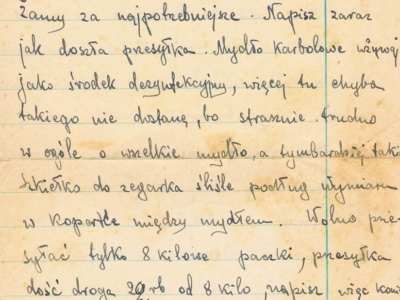 żamy za najpotrzebniejsze. Napisz zaraz
jak doszła przesyłka. Mydło karbolowe używaj
jako środek dezynfekcyjny, więcej tu chyba
takiego nie dostanę, bo strasznie trudno
w ogóle o wszelkie mydło, a tymbardziej taki
Szkiełko do zegarka ściśle podług wymiaru
w kopertce między mydłem. Wolno prze-
syłać tylko 8 kilowe paczki, przesyłka
dość droga rb od 8 kilo, napisz więc